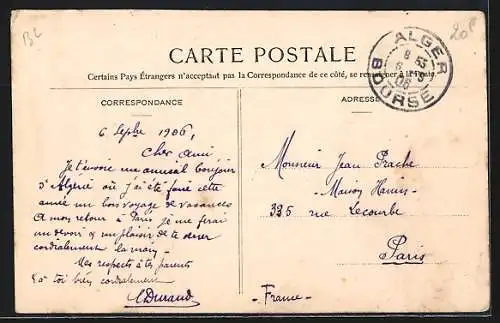 BL
20F
CARTE POSTALE
Certains Pays Étrangers n'acceptant pas la Correspondance de ce côté, se renseigner à la Poste
ALGER
BOURSE
CORRESPONDANCE
ADRESSE
6 Sepbre 1906,
Cher ami,
Je t'envoie un amical bonjour
d'Algérie où j'ai été faire cette
année un bon voyage de vacances
A mon retour à Paris je me ferai
un devoir & un plaisir de te serrer
cordialement la main -
Mes respects à tes parents
& à toi bien cordialement
Durand
Monsieur Jean
- Maison
335 rue Lecourbe
Paris
- France -